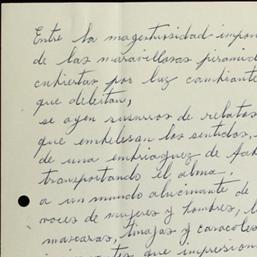 Entre la magestuosidad impon
de las maravillosas piramid
cubiertas por luz cambiante
que deleitan,
se oyen susurros de relatos
que embelesan los sentidos,
de una embriaguez de
transportando el alma
a un mundo alucinante de
voces de mujeres y hombres, l
mascaras, tinajas y caracoles
que impresion